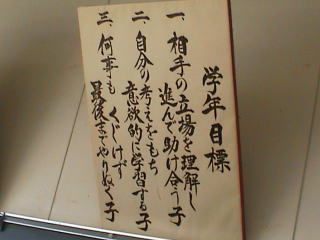 学年目標
一、相手の立場を理解し
進んで助け合う子
二、自分の考えをもち
意欲的に学習する子
三、何事も くじけず
最後までやりぬく子